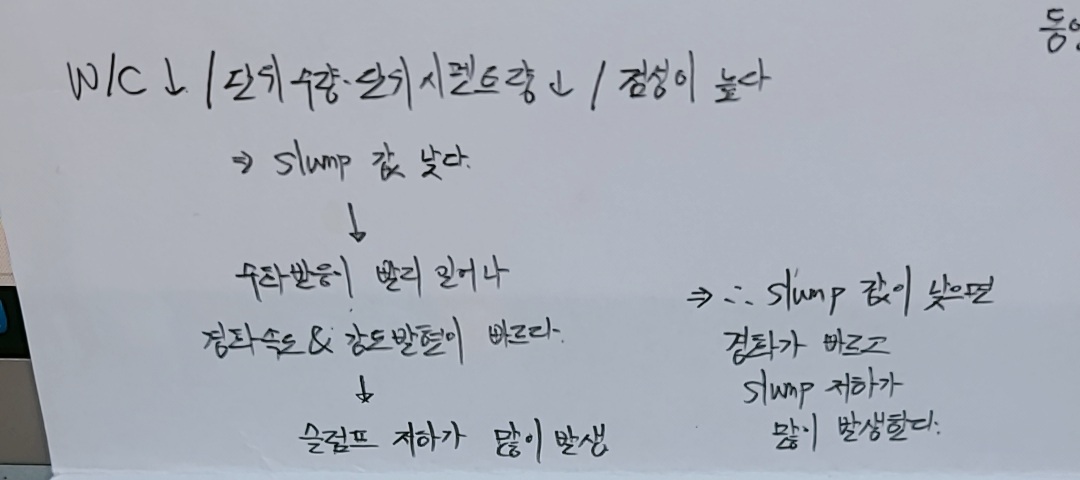 W/C ↓ / 단위수량·단위시멘트량 ↓ / 점성이 높다
⇒ Slump 값 낮다.
↓
수화반응이 빨리 일어나
경화속도 & 강도발현이 빠르다.
↓
슬럼프 저하가 많이 발생
⇒ ∴ Slump 값이 낮으면
경화가 빠르고
Slump 저하가
많이 발생한다.